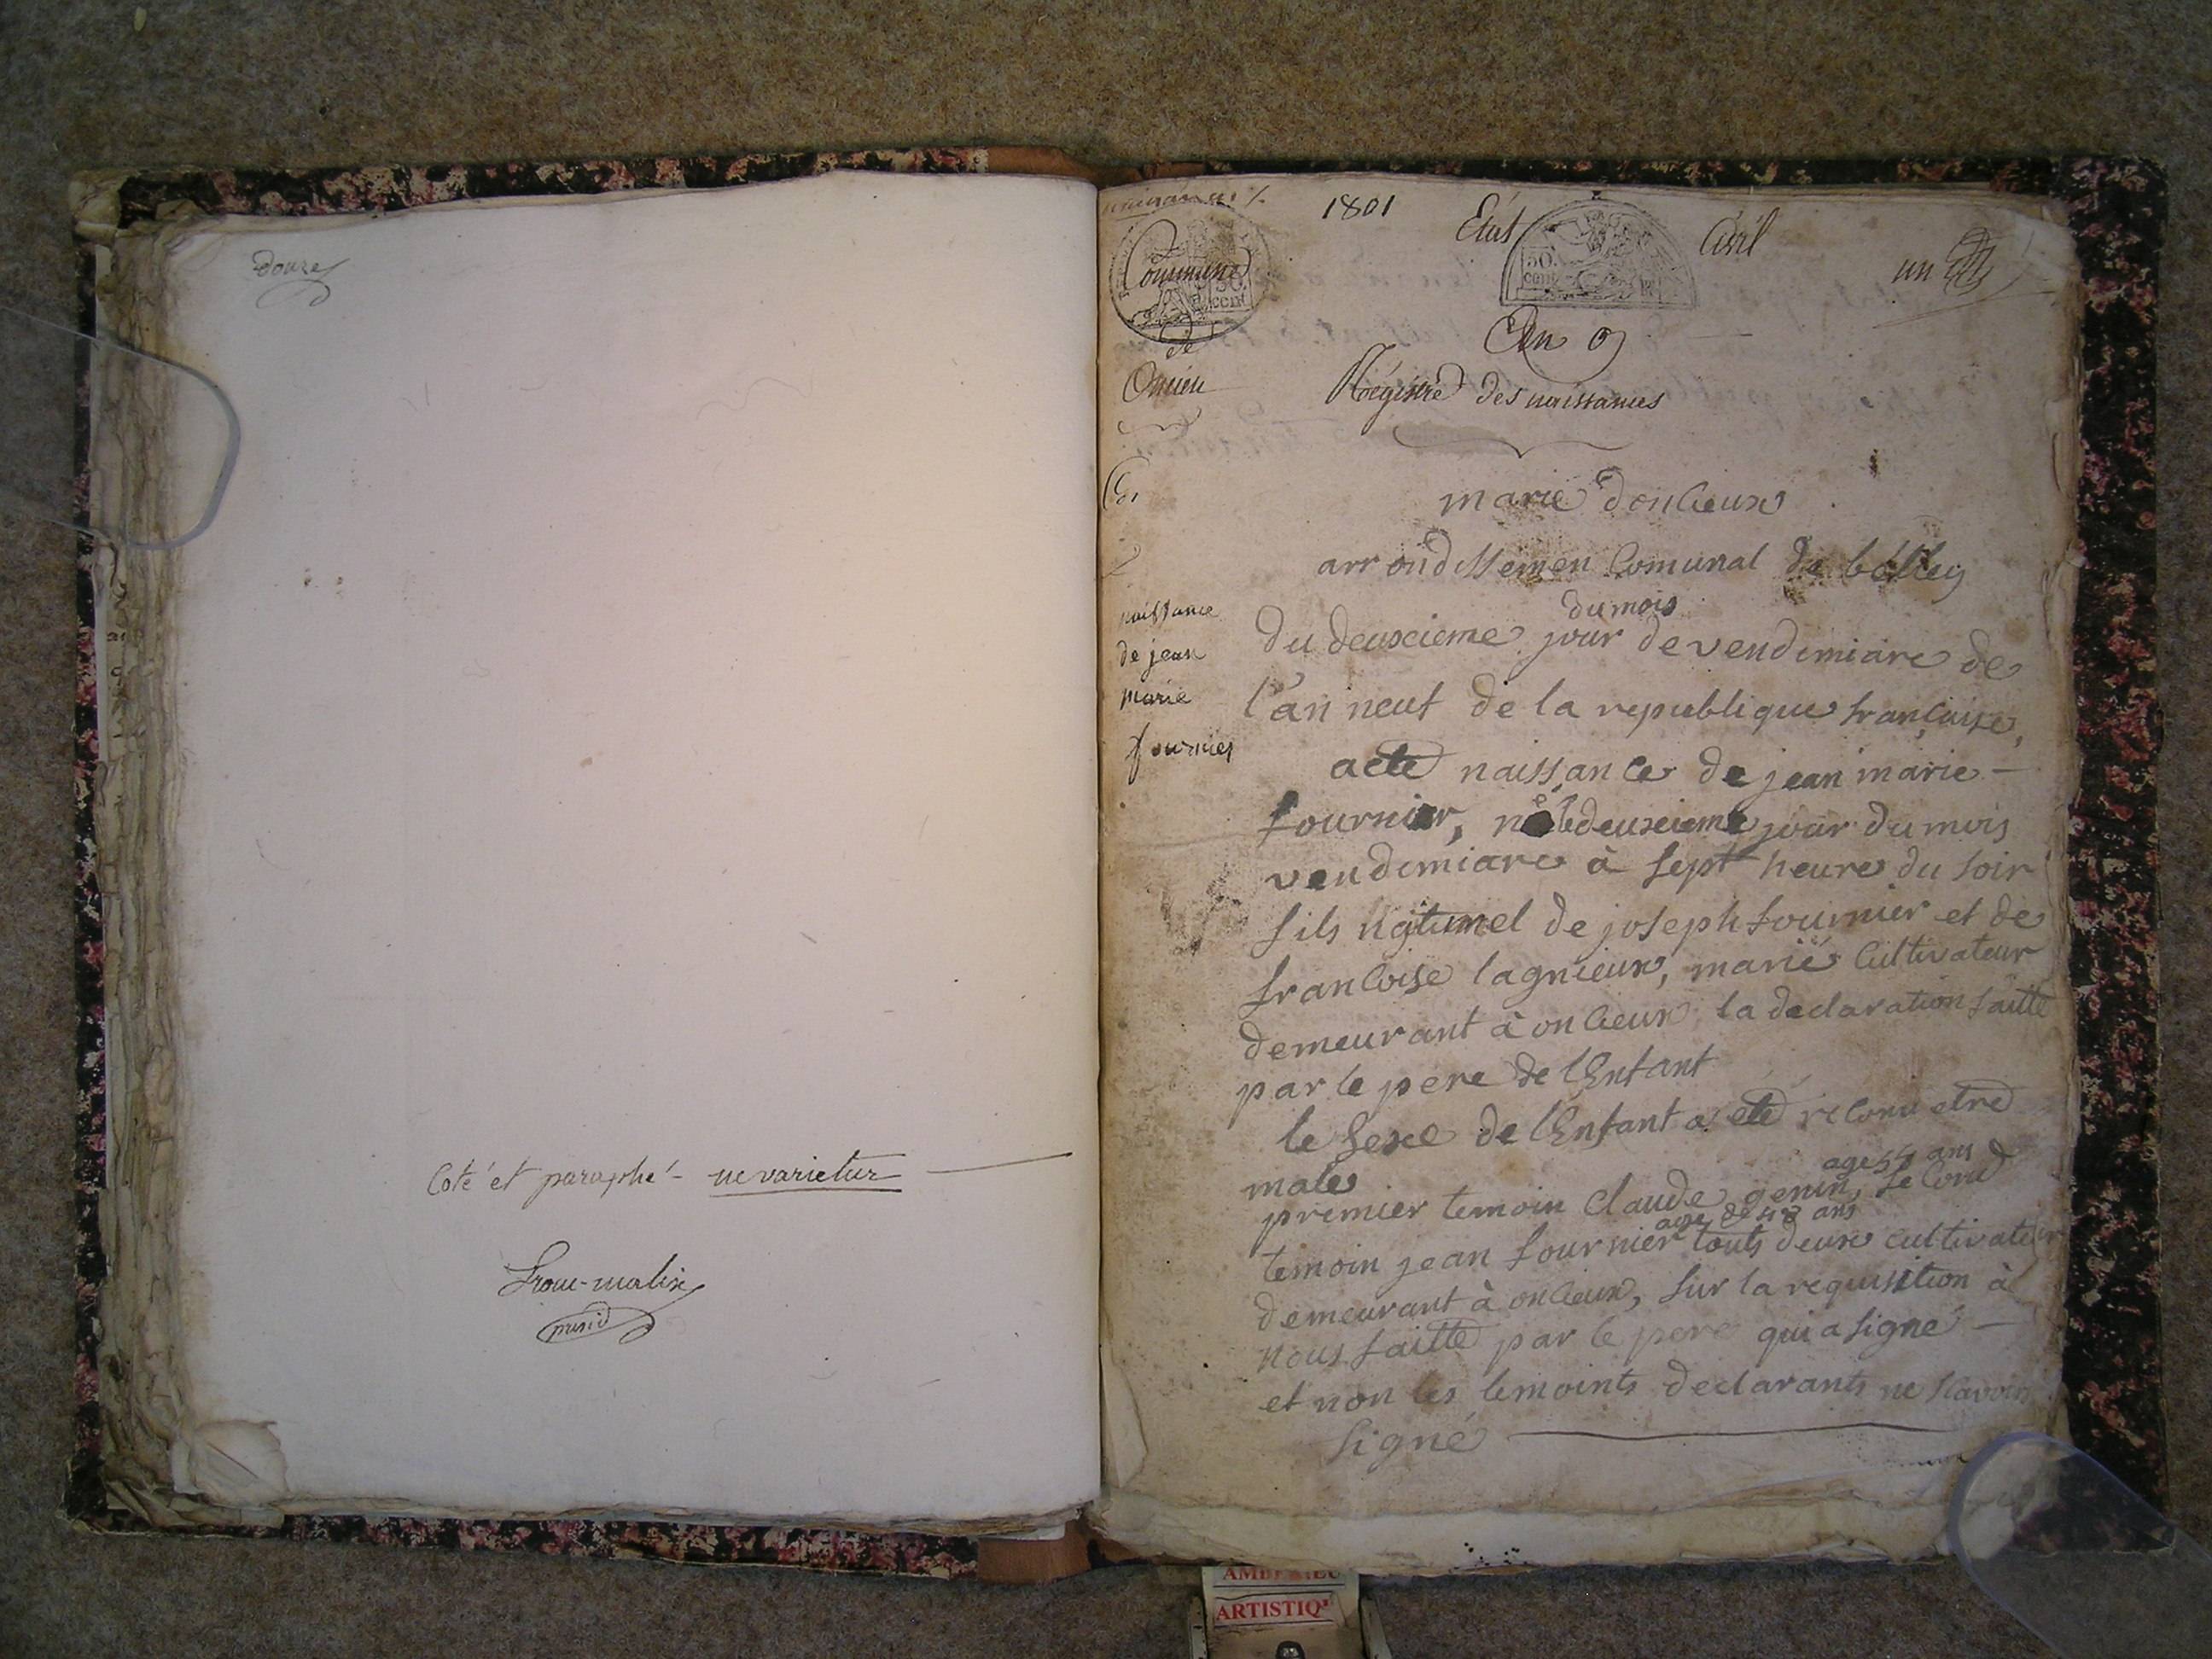 douze
Coté et paraphé - ne varietur
presid
1801
Etat Civil
un
50.
cent
Commune
50.
cent
de
Oncieu
An 9
Régistre des naissances
marie donlieux
arrondissemen Comunal de belley
naissance
de jean
marie
fournier
du mois
du deuxcieme jour de vendemiare de
l'an neuf de la republique françaises,
acte naissance de jean marie -
fournier, né le deuxcieme jour du mois
vendemiare à sept heure du soir
fils naturel de joseph fournier et de
francoise lagnieux, marié cultivateur
demeurant à onlieux la declaration faitte
par le pere de l'Enfant
le sexe de l'Enfant a eté reconu etre
male
age 54 ans
premier temoin Claude genin, second
age de 43 ans
temoin jean fournier touts deux cultivateur
demeurant à onlieux, sur la requisition à
nous faitte par le pere qui a signé -
et non les temoints declarants ne scavoir
signé
ARTISTIQ